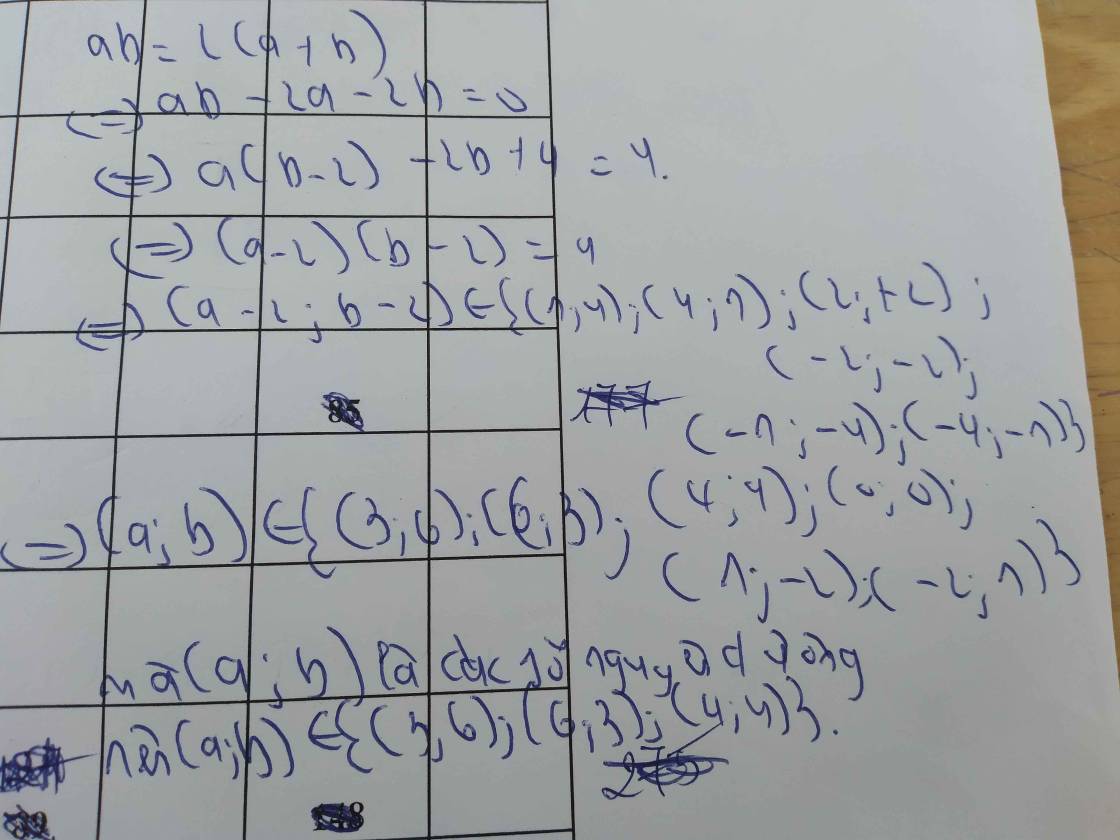 ab = 2(a+b)
(=) ab - 2a - 2b = 0
(=) a(b-2) - 2b + 4 = 4.
(=) (a-2)(b-2) = 4
(=) (a-2; b-2) ∈ {(1;4); (4;1); (2;+2);
(-2;-2);
(-1;-4); (-4;-1)}
(=) (a; b) ∈ {(3;6); (6;3); (4;4); (0;0);
(1;-2); (-2;1)}
mà (a; b) là các số nguyên dương
nên (a;b) ∈ {(3;6); (6;3); (4;4)}.